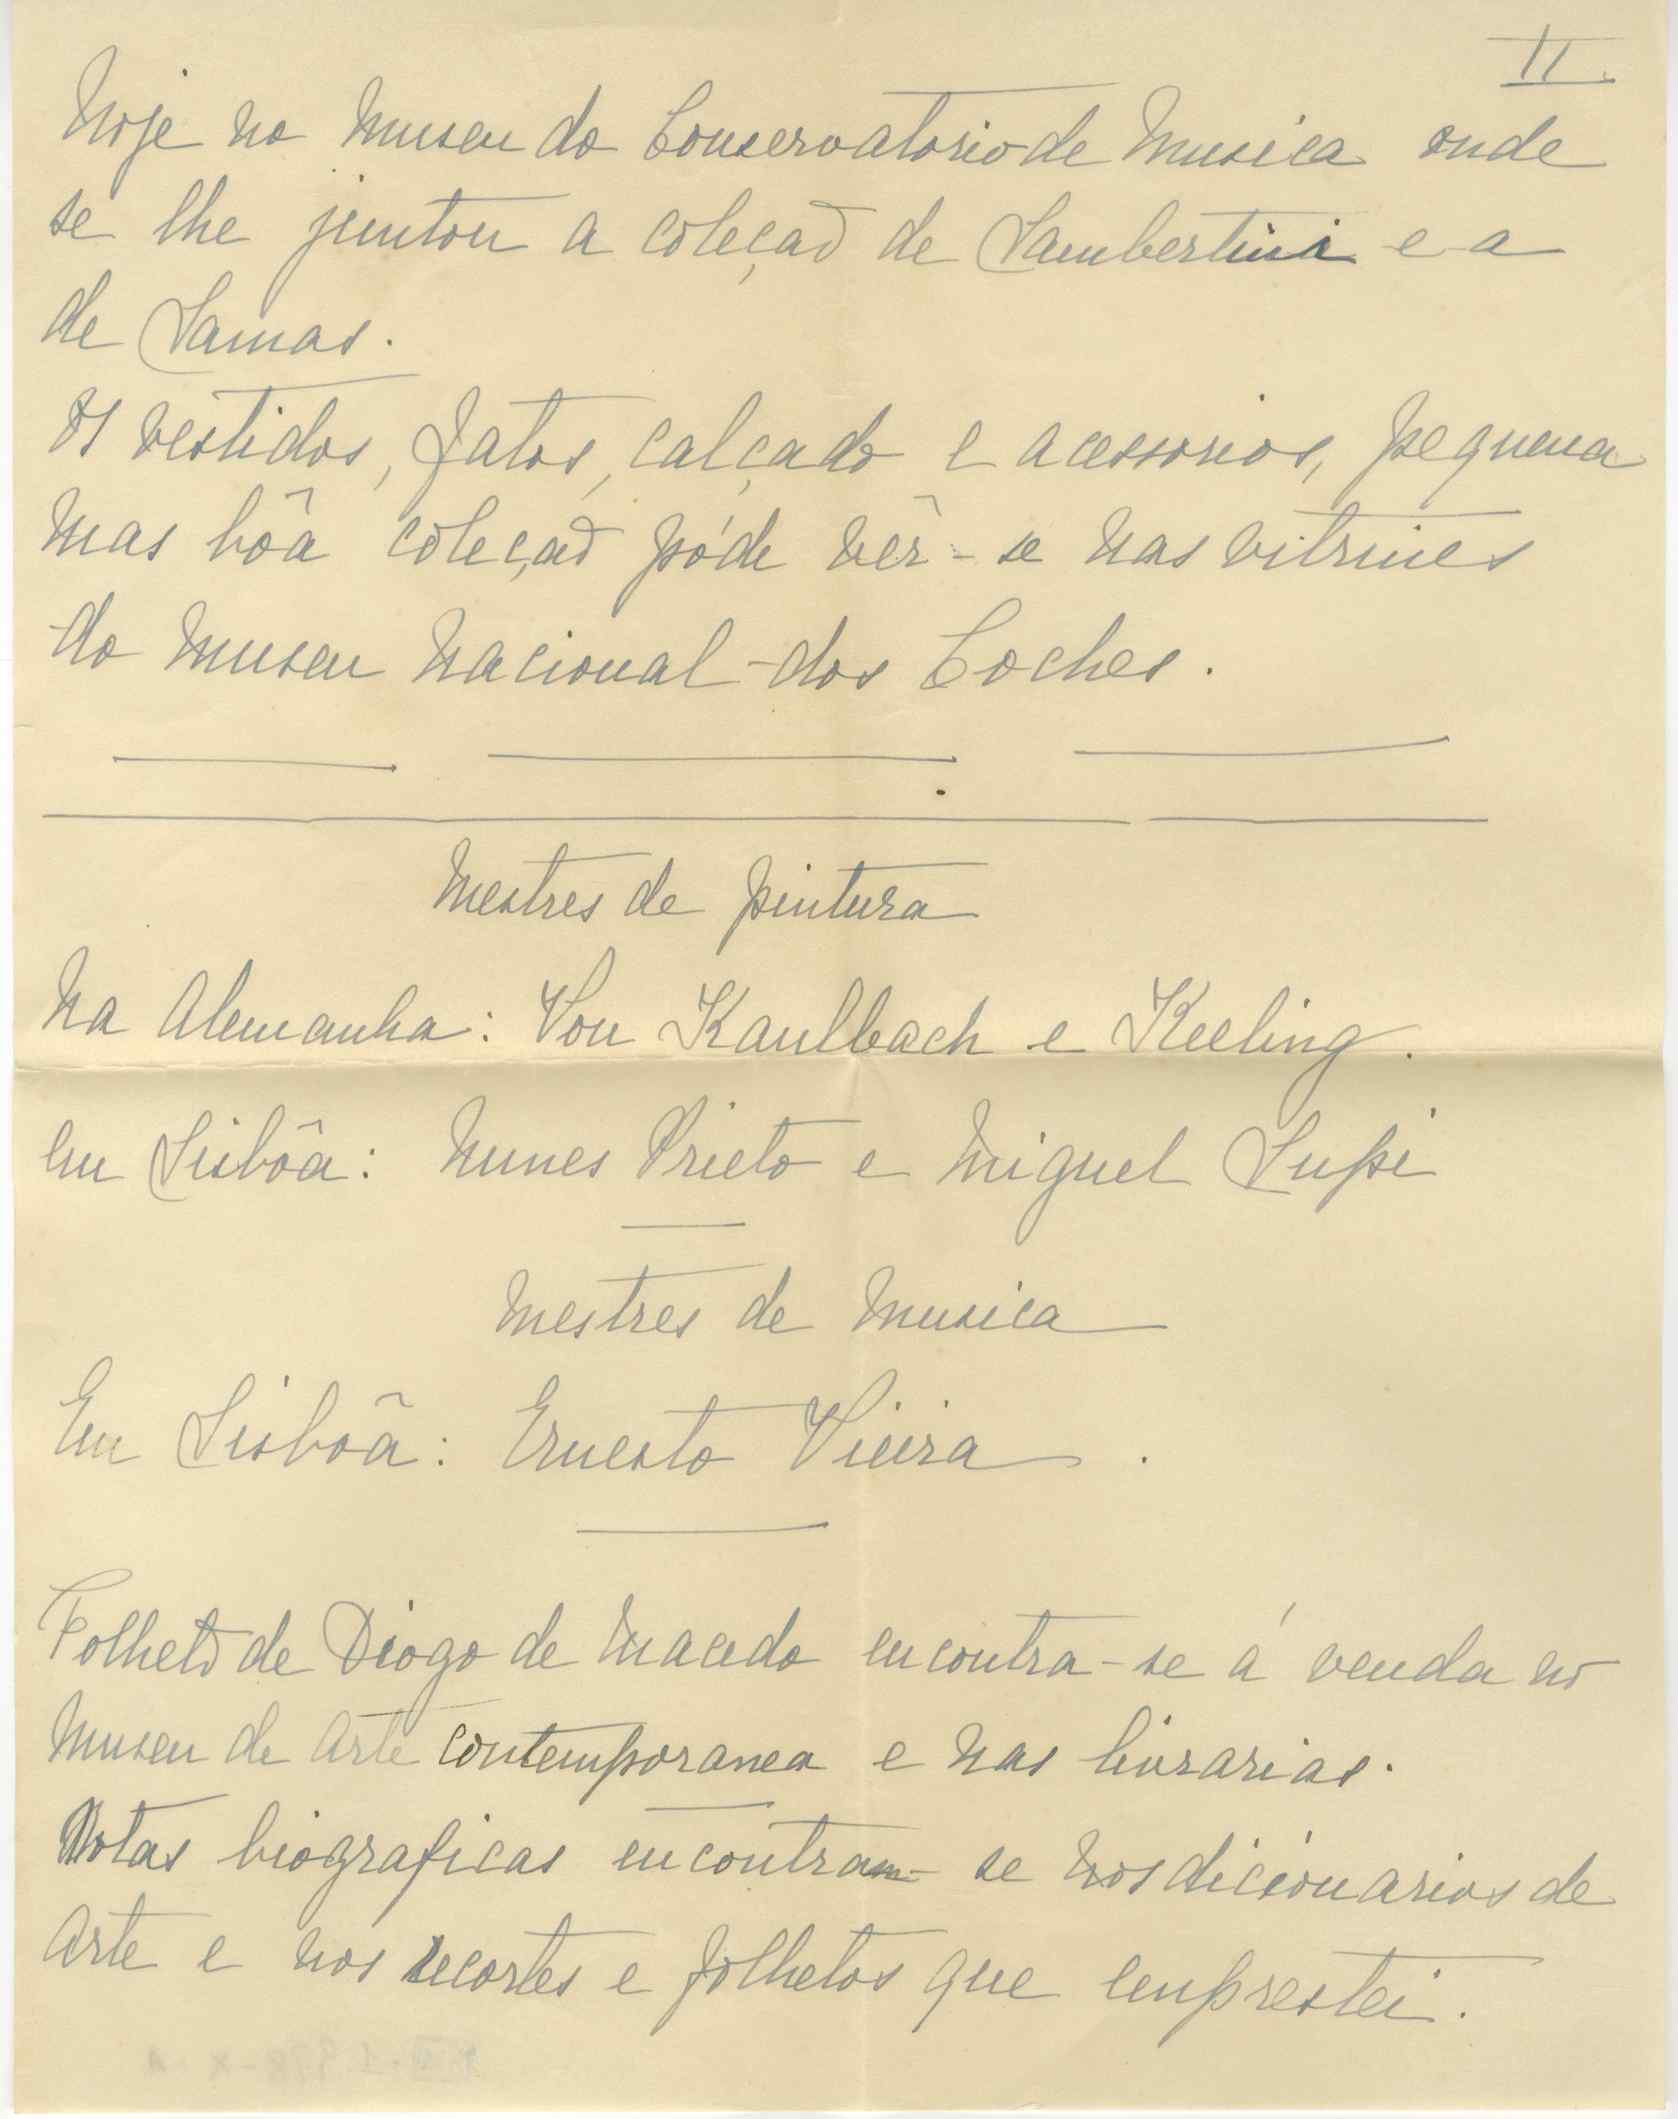 II.
Hoje no Museu do Conservatorio de Musica onde
se lhe juntou a coleção de Lambertini e a
de Lamas.
Os vestidos, fatos, calçado e acessorios, pequena
mas bôa coleção póde vêr-se nas vitrines
do Museu Nacional dos Coches.
Mestres de pintura
Na Alemanha: Von Kaulbach e Keeling.
em Lisbôa: Nunes Prieto e Miguel Lupi
Mestres de Musica
Em Lisbôa: Ernesto Vieira.
Folheto de Diogo de Macedo encontra-se á venda no
Museu de Arte Contemporanea e nas livrarias.
Notas biograficas encontram-se nos dicionarios de
Arte e nos recortes e folhetos que emprestei.